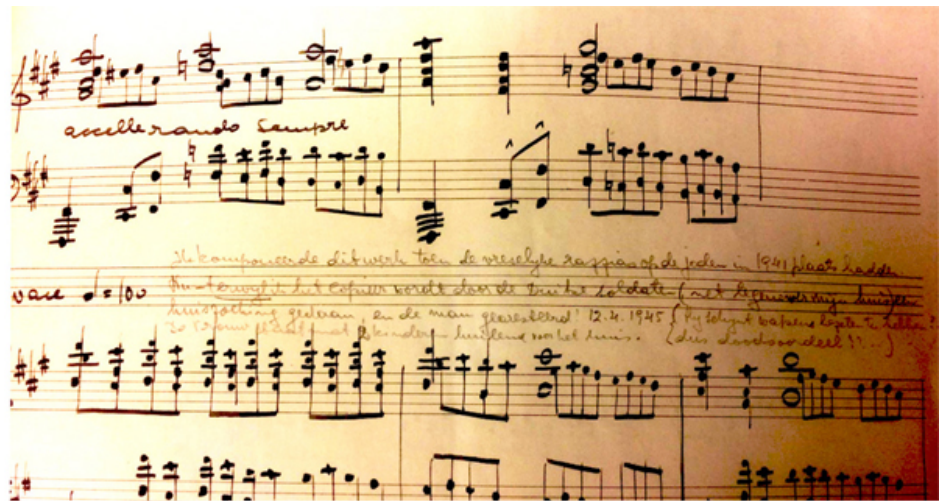 accellerando sempre
Ik komponeerde dit werk toen de vreselyke razzias op de joden in 1941 plaats hadden
ik het copieer wordt door de Duitse soldaten (net tegenover myn huis) een
huiszoeking gedaan, en de man gearresteerd! 12.4.1945 {Hy schynt wapens bezeten te hebben
vrouw staat met kinderen huilend voor het huis. {dus doodsoordeel!?...}
vace ♩=100